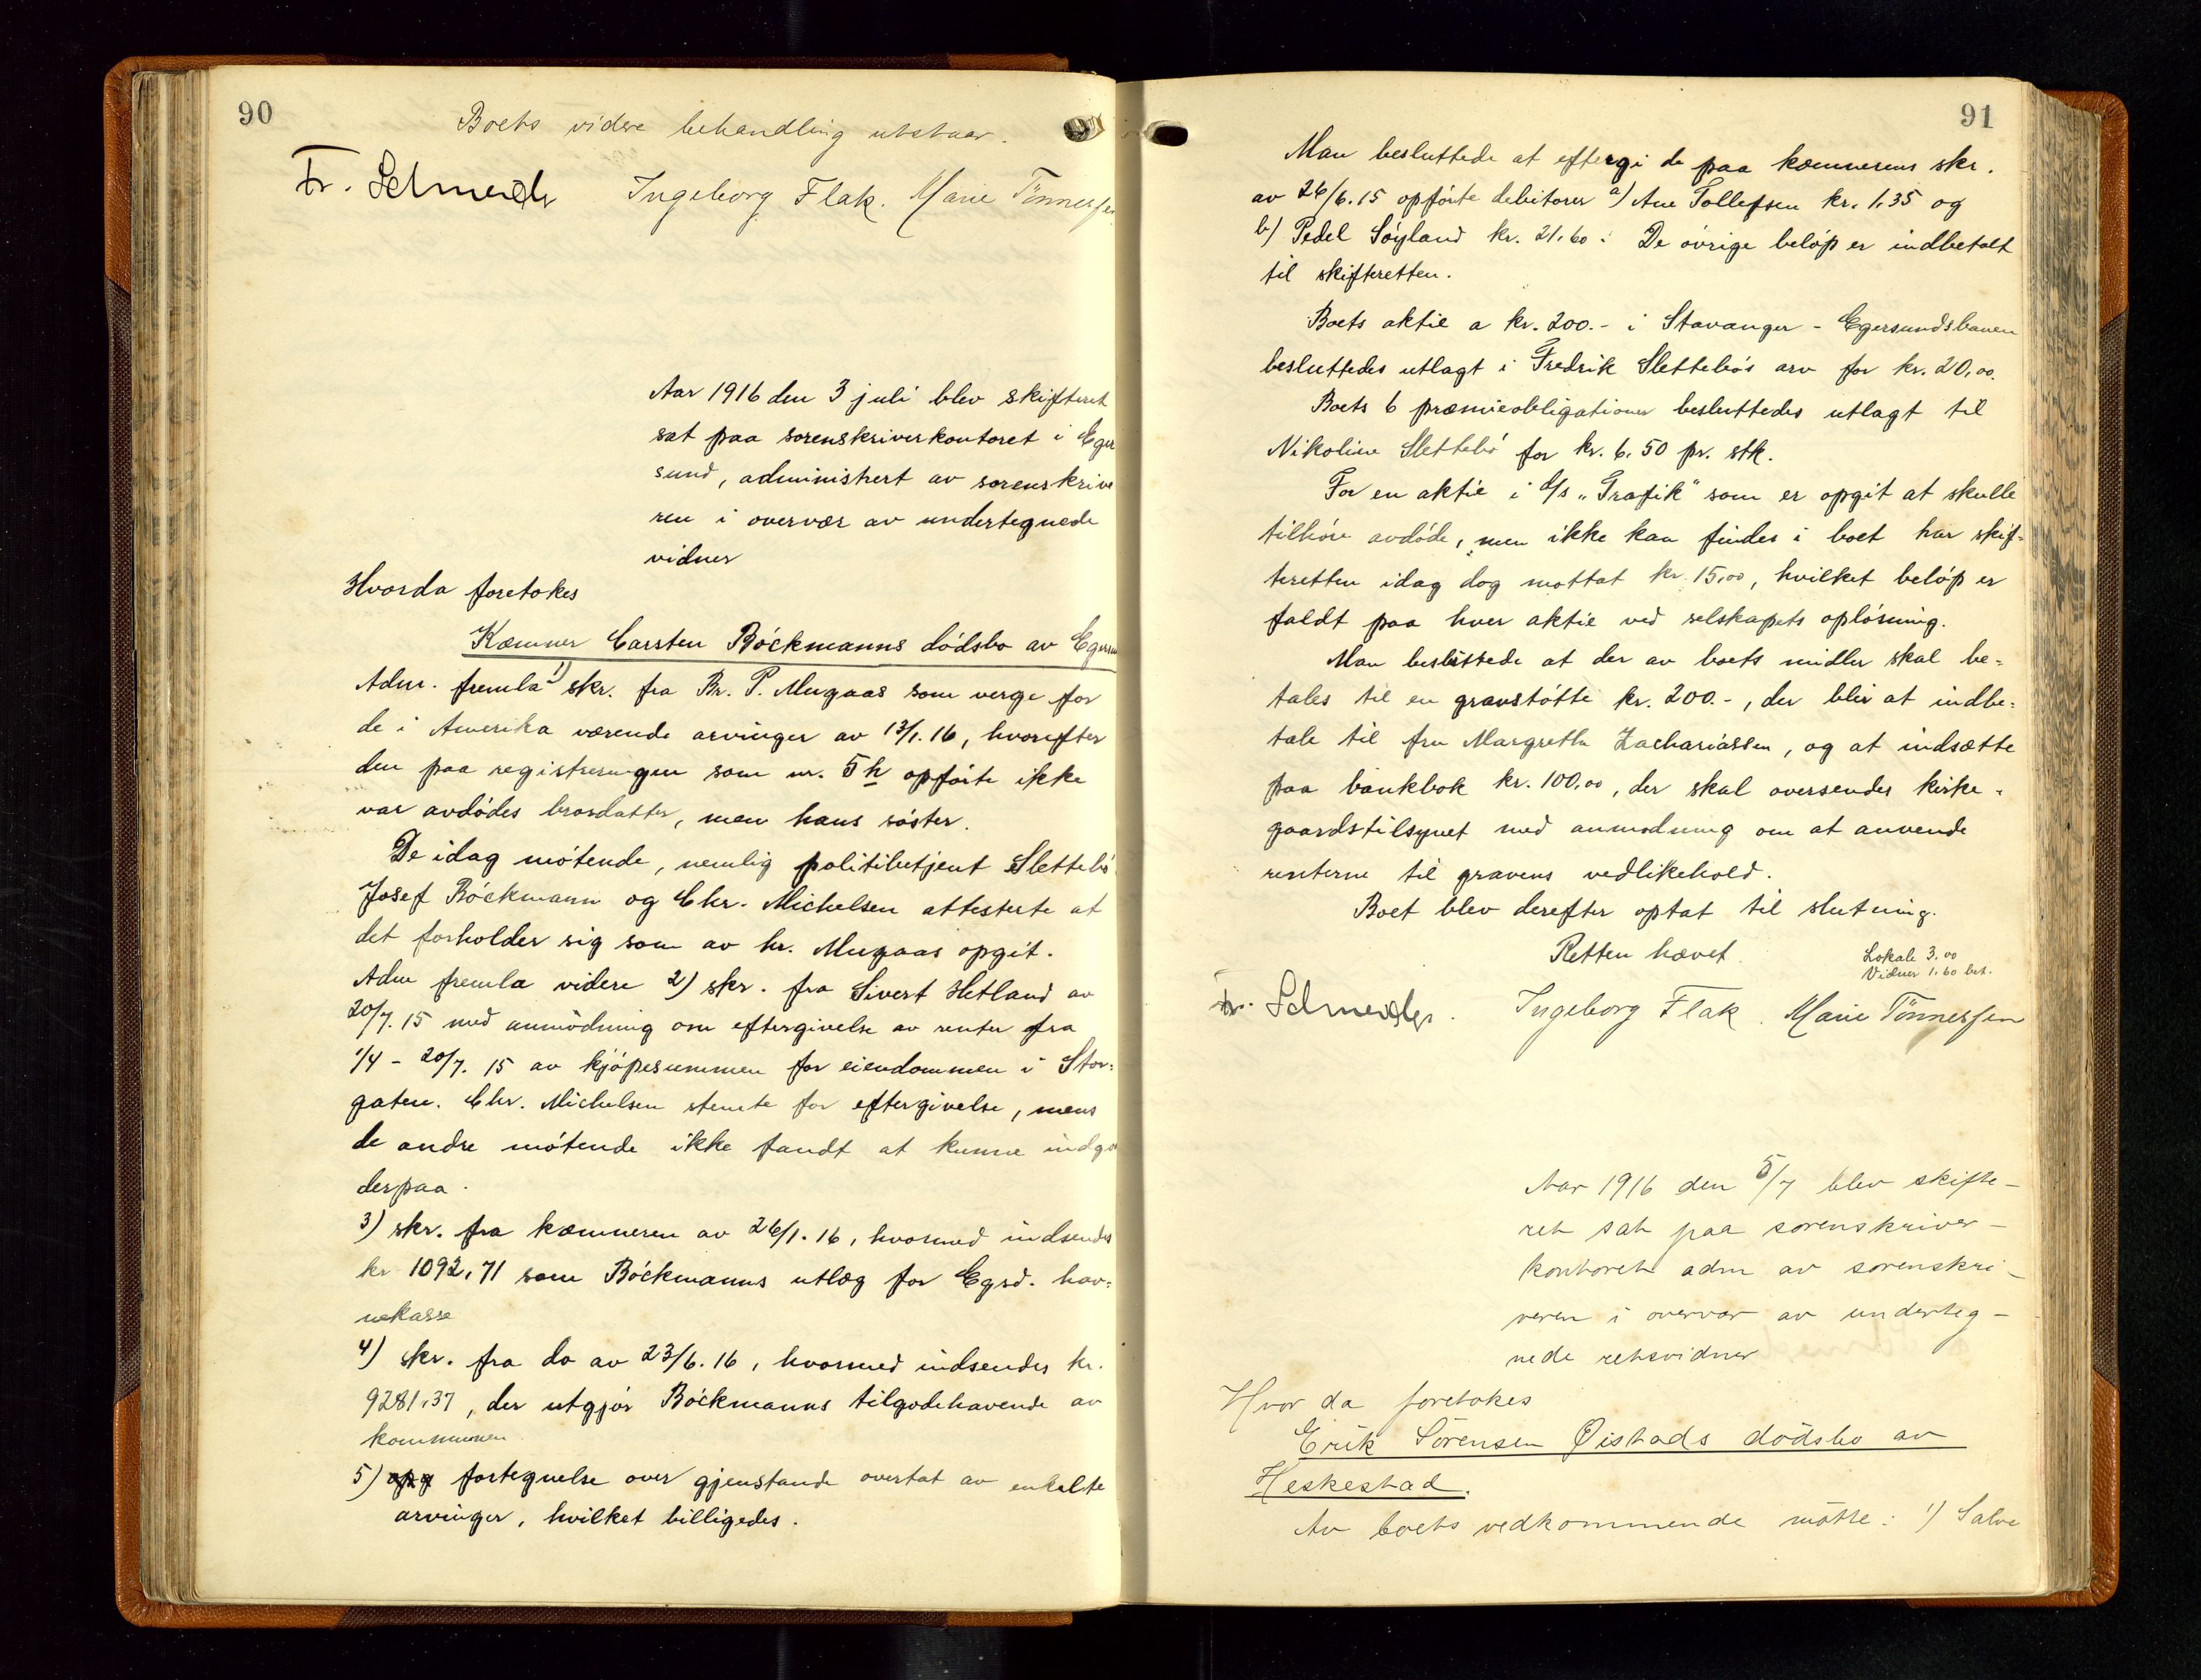 90
Boets videre behandling utstaar.
Fr. Schneider Ingeborg Flak. Marie Tönnessen
Aar 1916 den 3 juli blev skifteret
sat paa sorenskriverkontoret i Eger
sund, administrert av sorenskrive
ren i overvær av undertegnede
vidner
Hvorda foretokes
Kæmner Carsten Böckmanns dödsbo av Egersun
Adm. fremla 1) skr. fra Br. P. Mugaas som verge for
de i Amerika værende arvinger av 13/1.16, hvorefter
den paa registreringen som nr. 5 h opförte ikke
var avdödes brordatter, men hans söster.
De idag mötende, nemlig politibetjent Slettebö
Josef Böckmann og Chr. Michelsen attesterte at
det forholder sig som av hr. Mugaas opgit.
Adm fremla videre 2) skr. fra Sivert Hetland av
20/7.15 med anmodning om eftergivelse av renter fra
1/4 - 20/7. 15 av kjöpesummen for eiendommen i Stor-
gaten. Chr. Michelsen stemte for eftergivelse, mens
de andre mötende ikke fandt at kunne indgaa
derpaa.
3) skr. fra kæmneren av 26/1.16, hvormed indsendes
kr 1092,71 som Böckmanns utlæg for Egsd. hav-
nekasse
4) skr. fra do av 23/6.16, hvormed indsendes kr.
9281,37, der utgjör Böckmanns tilgodehavende av
kommunen
5) fortegnelse over gjenstande overtat av enkelte
arvinger, hvilket billigedes.
91
Man besluttede at eftergi de paa kæmnerens skr.
av 26/6.15 opförte debitorer a) Ane Tollefsen kr. 1,35 og
b) Pedel Söyland kr. 21,60. De övrige belöp er indbetalt
til skifteretten.
Boets aktie a kr. 200.- i Stavanger - Egersundsbanen
besluttedes utlagt i Fredrik Slettebös arv for kr. 20,00.
Boets 6 præmieobligationer besluttedes utlagt til
Nikoline Slettebö for kr. 6,50 pr. stk.
For en aktie i A/s "Trafik" som er opgit at skulle
tilhöre avdöde, men ikke kan findes i boet har skif-
teretten idag dog mottat kr. 15,00, hvilket belöp er
faldt paa hver aktie ved selskapets oplösning.
Man besluttede at der av boets midler skal be-
tales til en gravstötte kr. 200.-, der blir at indbe-
tale til fru Margrethe Zachariassen, og at indsætte
paa bankbok kr. 100,00, der skal oversendes kirke-
gaardstilsynet med anmodning om at anvende
renterne til gravens vedlikehold.
Boet blev derefter optat til slutning.
Retten hævet.
Lokale 3,00
Vidner 1,60 bet.
Fr. Schneider. Ingeborg Flak. Marie Tönnessen
Aar 1916 den 5/7 blev skifte-
ret sat paa sorenskriver-
kontoret adm av sorenskri-
veren i overvær av underteg-
nede retsvidner
Hvor da foretokes
Erik Sörensen Øistads dödsbo av
Heskestad.
Av boets vedkommende mötte: 1) Salve